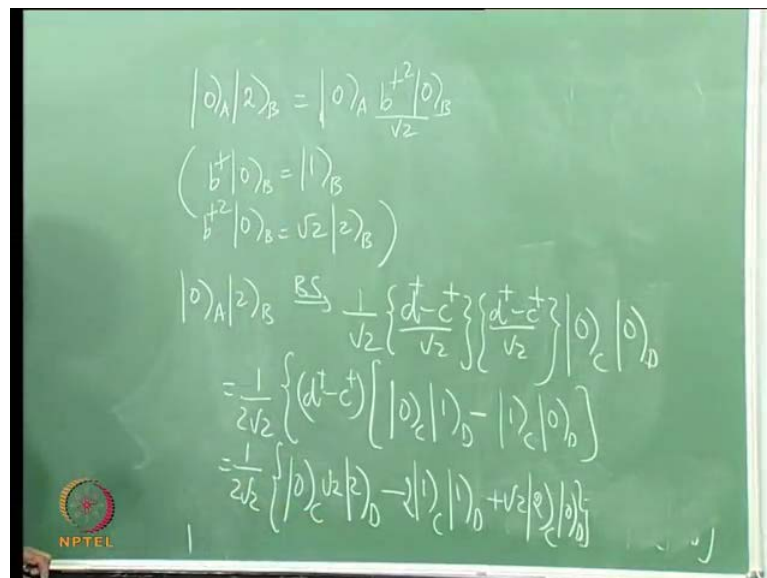 |0⟩_A |2⟩_B = |0⟩_A b†²/√2 |0⟩_B
( b†|0⟩_B = |1⟩_B
b†²|0⟩_B = √2 |2⟩_B )
|0⟩_A |2⟩_B BS→ 1/√2 { d†-c†/√2 } { d†-c†/√2 } |0⟩_C |0⟩_D
= 1/2√2 { (d†-c†) [ |0⟩_C |1⟩_D - |1⟩_C |0⟩_D ]
= 1/2√2 { |0⟩_C √2 |2⟩_D - 2|1⟩_C |1⟩_D + √2 |2⟩_C |0⟩_D }
NPTEL